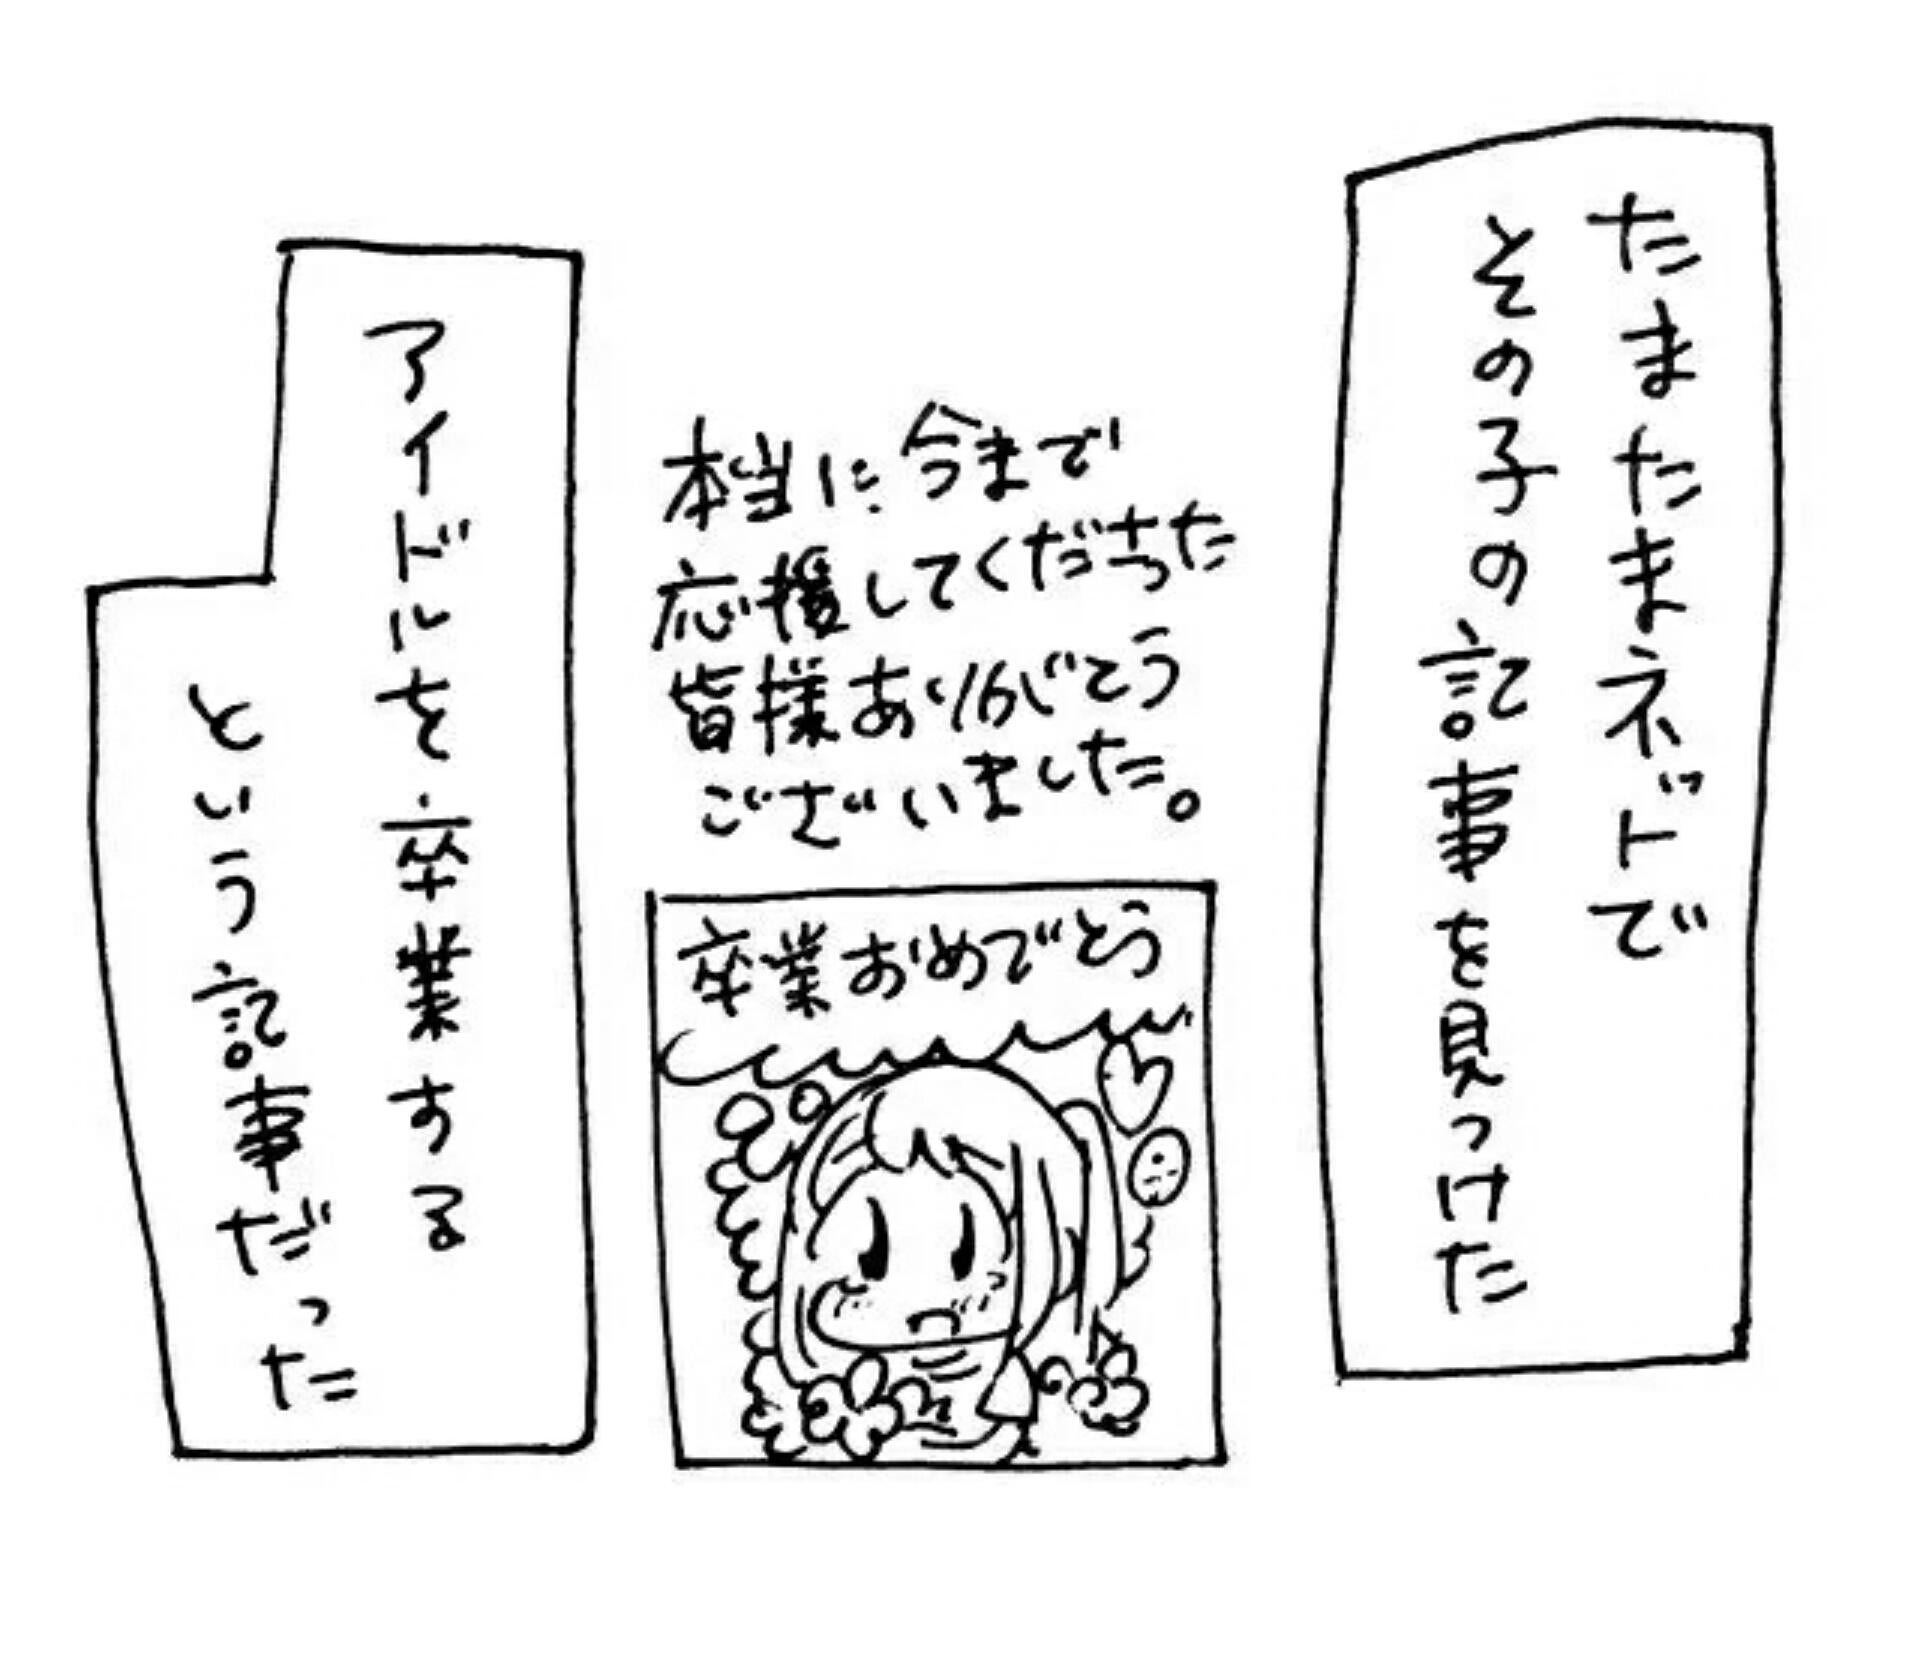 たまたまネットで
その子の記事を見つけた
本当に今まで
応援してくださった
皆様ありがとう
ございました。
卒業おめでとう
アイドルを卒業する
という記事だった